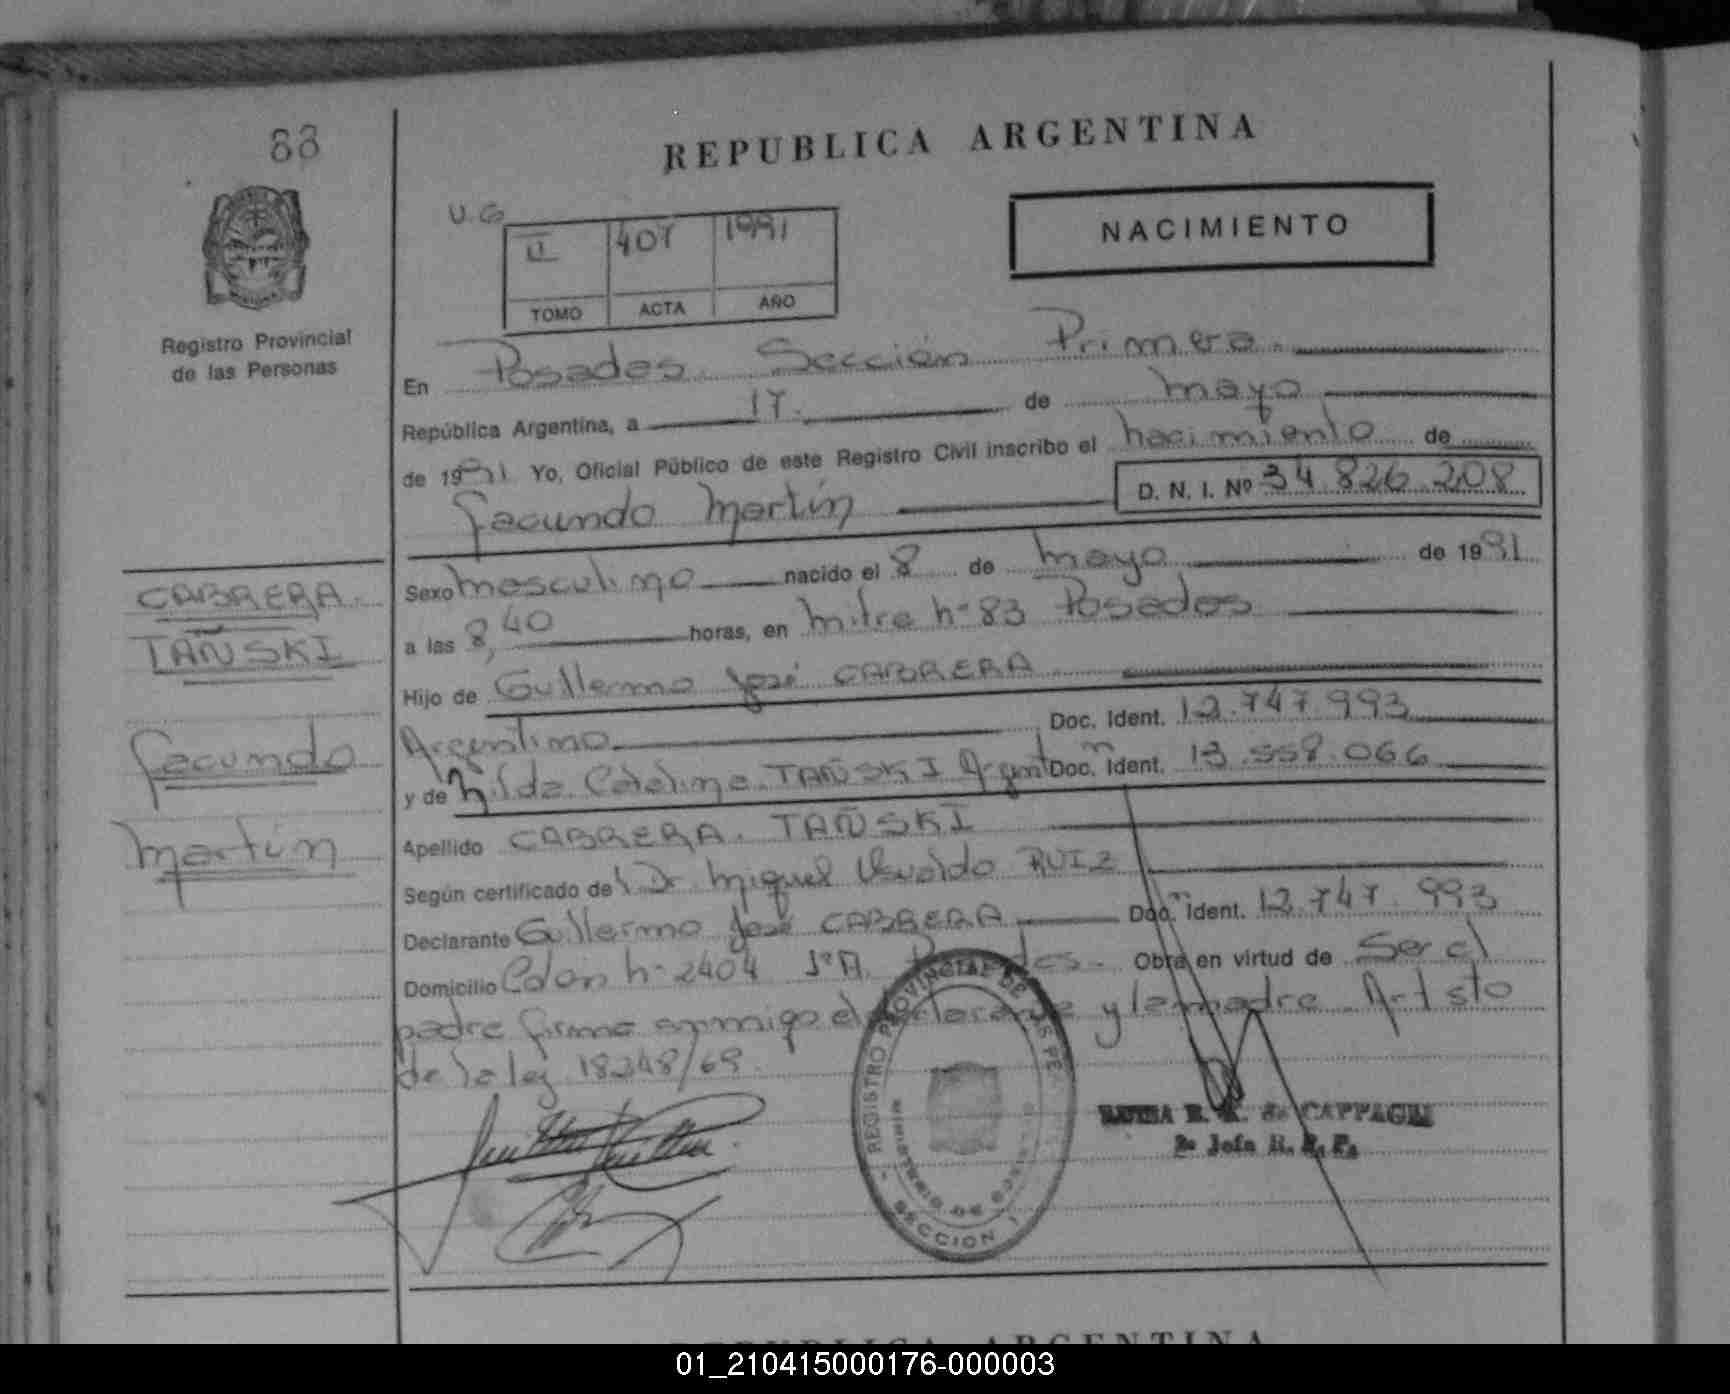 88
REPUBLICA ARGENTINA
NACIMIENTO
U.G
II 407 1991
TOMO ACTA AÑO
Registro Provincial
de las Personas
En Posadas. Sección Primera.
República Argentina, a 17. de mayo
de 1991 Yo, Oficial Público de este Registro Civil inscribo el nacimiento de
Facundo Martín D. N. I. Nº 34.826.208
CABRERA.
TAÑSKI
Facundo
Martín
Sexo masculino nacido el 8 de mayo de 1991
a las 8,40 horas, en Mitre nº 83 Posadas
Hijo de Guillermo José CABRERA
Argentino Doc. Ident. 12.747.993
y de Hilda Catalina TAÑSKI Argentn Doc. Ident. 13.558.066
Apellido CABRERA. TAÑSKI
Según certificado del Dr Miguel Osvaldo RUIZ
Declarante Guillermo José CABRERA Doc. Ident. 12.747.993
Domicilio Colon nº 2404 1ºA. Posadas. Obra en virtud de Ser el
padre firma conmigo el declarante y la madre. Art 5to
de la ley 18248/69.
REGISTRO PROVINCIAL DE LAS PER
MINISTERIO DE
SECCION 1
R. de CAPPAGLI
2º Jefa R. P. P.
REPUBLICA ARGENTINA
01_210415000176-000003